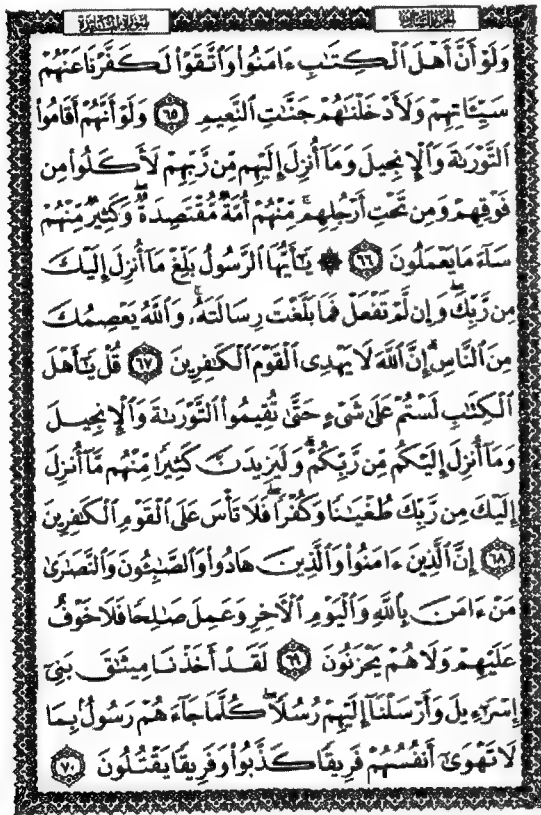 الجزء السادس سورة المائدة
وَلَوْ أَنَّ أَهْلَ ٱلْكِتَٰبِ ءَامَنُوا۟ وَٱتَّقَوْا۟ لَكَفَّرْنَا عَنْهُمْ
سَيِّـَٔاتِهِمْ وَلَأَدْخَلْنَٰهُمْ جَنَّٰتِ ٱلنَّعِيمِ ٦٥ وَلَوْ أَنَّهُمْ أَقَامُوا۟
ٱلتَّوْرَىٰةَ وَٱلْإِنجِيلَ وَمَآ أُنزِلَ إِلَيْهِم مِّن رَّبِّهِمْ لَأَكَلُوا۟ مِن
فَوْقِهِمْ وَمِن تَحْتِ أَرْجُلِهِم ۚ مِّنْهُمْ أُمَّةٌ مُّقْتَصِدَةٌ ۖ وَكَثِيرٌ مِّنْهُمْ
سَآءَ مَا يَعْمَلُونَ ٦٦ ۞ يَٰٓأَيُّهَا ٱلرَّسُولُ بَلِّغْ مَآ أُنزِلَ إِلَيْكَ
مِن رَّبِّكَ ۖ وَإِن لَّمْ تَفْعَلْ فَمَا بَلَّغْتَ رِسَالَتَهُۥ ۚ وَٱللَّهُ يَعْصِمُكَ
مِنَ ٱلنَّاسِ ۗ إِنَّ ٱللَّهَ لَا يَهْدِى ٱلْقَوْمَ ٱلْكَٰفِرِينَ ٦٧ قُلْ يَٰٓأَهْلَ
ٱلْكِتَٰبِ لَسْتُمْ عَلَىٰ شَىْءٍ حَتَّىٰ تُقِيمُوا۟ ٱلتَّوْرَىٰةَ وَٱلْإِنجِيلَ
وَمَآ أُنزِلَ إِلَيْكُم مِّن رَّبِّكُمْ ۗ وَلَيَزِيدَنَّ كَثِيرًا مِّنْهُم مَّآ أُنزِلَ
إِلَيْكَ مِن رَّبِّكَ طُغْيَٰنًا وَكُفْرًا ۖ فَلَا تَأْسَ عَلَى ٱلْقَوْمِ ٱلْكَٰفِرِينَ
٦٨ إِنَّ ٱلَّذِينَ ءَامَنُوا۟ وَٱلَّذِينَ هَادُوا۟ وَٱلصَّٰبِـُٔونَ وَٱلنَّصَٰرَىٰ
مَنْ ءَامَنَ بِٱللَّهِ وَٱلْيَوْمِ ٱلْـَٔاخِرِ وَعَمِلَ صَٰلِحًا فَلَا خَوْفٌ
عَلَيْهِمْ وَلَا هُمْ يَحْزَنُونَ ٦٩ لَقَدْ أَخَذْنَا مِيثَٰقَ بَنِىٓ
إِسْرَٰٓءِيلَ وَأَرْسَلْنَآ إِلَيْهِمْ رُسُلًا ۖ كُلَّمَا جَآءَهُمْ رَسُولٌۢ بِمَا
لَا تَهْوَىٰٓ أَنفُسُهُمْ فَرِيقًا كَذَّبُوا۟ وَفَرِيقًا يَقْتُلُونَ ٧٠